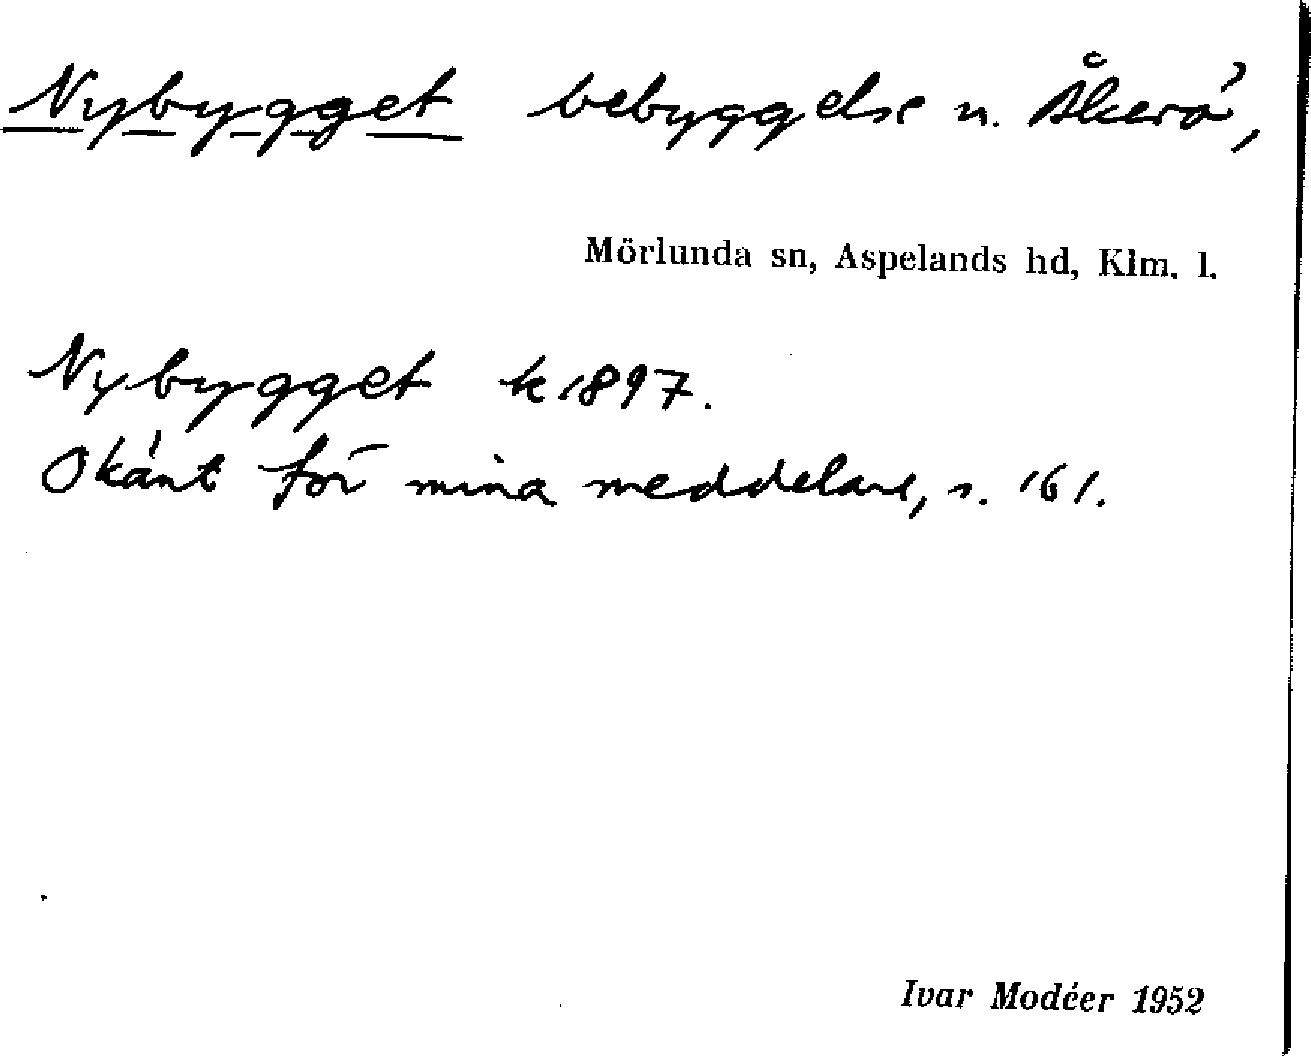 Nybygget bebyggelse u. Åkerö,
Mörlunda sn, Aspelands hd, Klm. l.
Nybygget k 1897.
Okänt för mina meddelare, s. 161.
Ivar Modéer 1952